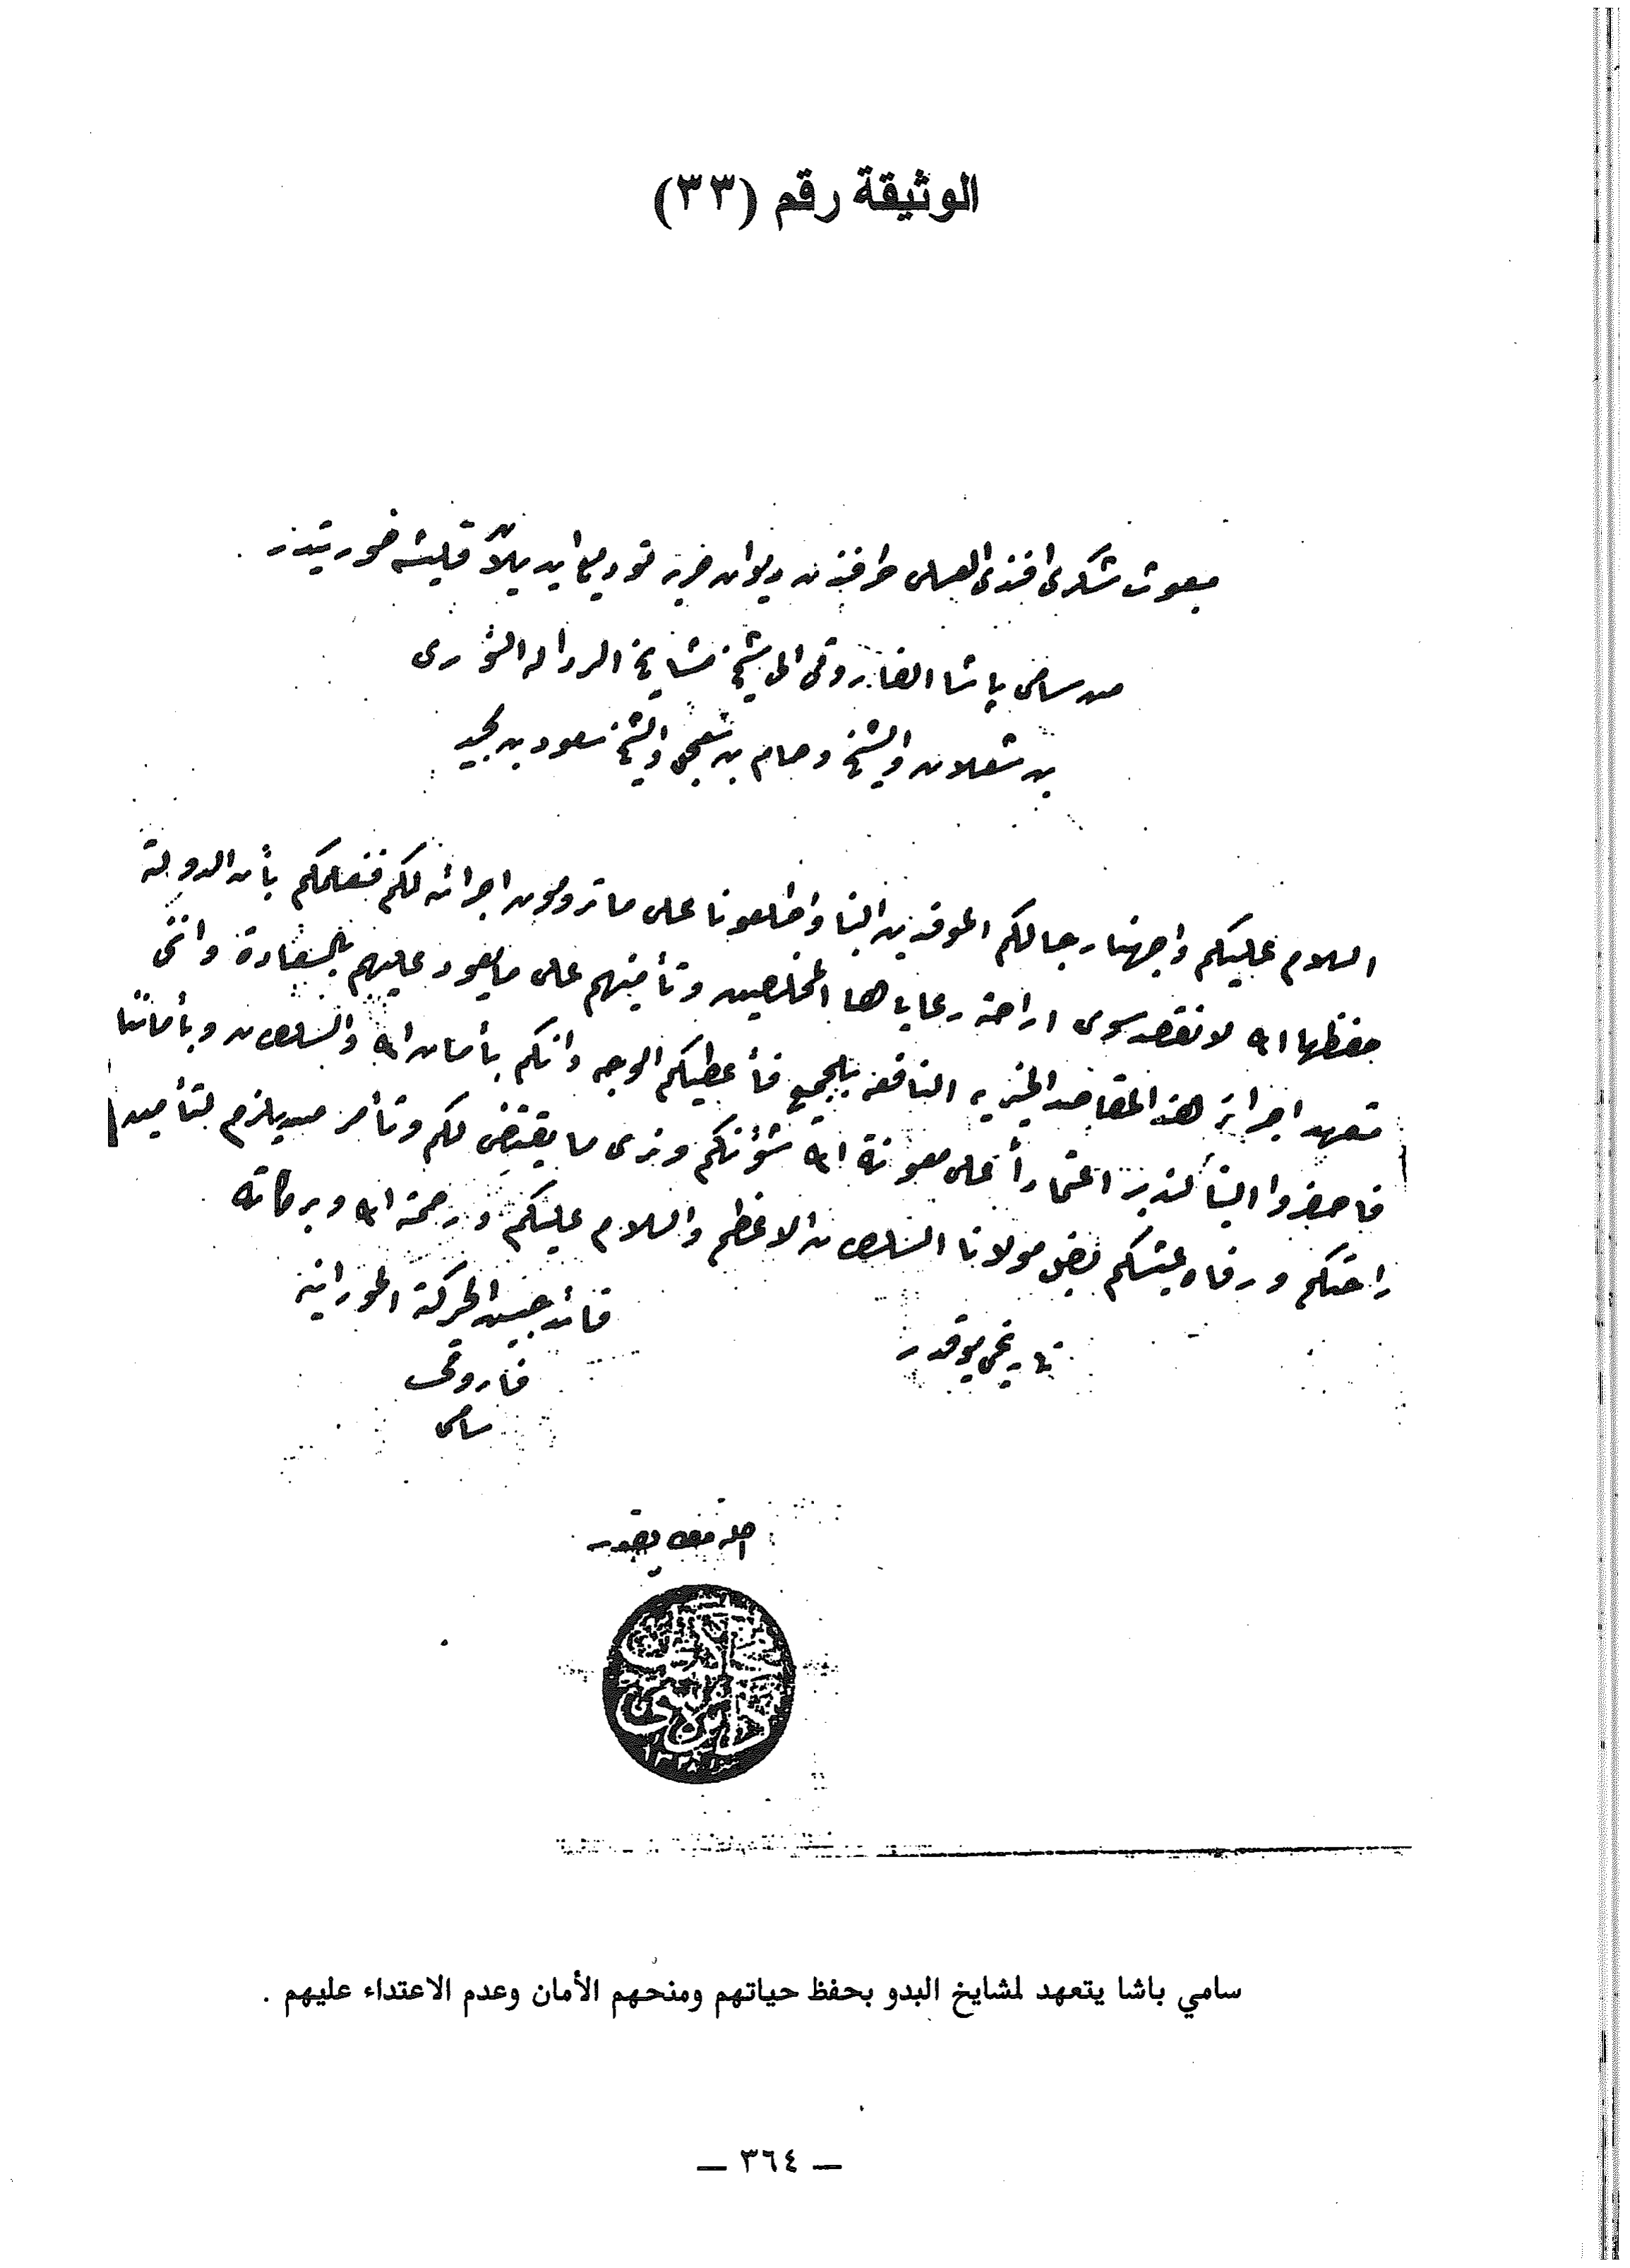 الوثيقة رقم (٣٣)
مبعوث شكرى افندى العسلى طرفندن ديوان حربه توديع ايديلان قليشه صورتيدر
من سامى پاشا الفاروقى الى شيخ مشايخ الرواله النورى
بن شعلان والشيخ وحام بن والشيخ سعود بن
السلام عليكم واجهنا رجالكم الموفدين الينا واطلعونا على ما ترومون اجرائه لكم فنعلمكم بأن الدولة
حفظها الله لا تقصد سوى اراحة رعاياها المخلصين وتأمينهم على ما يعود عليهم بالسعادة واننى
متعهد اجرائه هذه المقاصد الخيريه النافعه للجميع فأعطيكم الوجه وانكم بأمان الله والسلطان وبأماننا
فاحضروا الينا لتدبر اعتماداً على معونة الله شؤنكم ونرى ما يقتضى لكم ونأمر من يلزم لتأمين
راحتكم ورفاه عيشكم بفضل مولانا السلطان الاعظم والسلام عليكم ورحمة الله وبركاته
قائد جيش الحركة الحورانيه
تاريخى يوقدر
فاروقى
سامى
اصله مطابقدر
١٣٢٨
سامي باشا يتعهد لمشايخ البدو بحفظ حياتهم ومنحهم الأمان وعدم الاعتداء عليهم .
— ٣٦٤ —